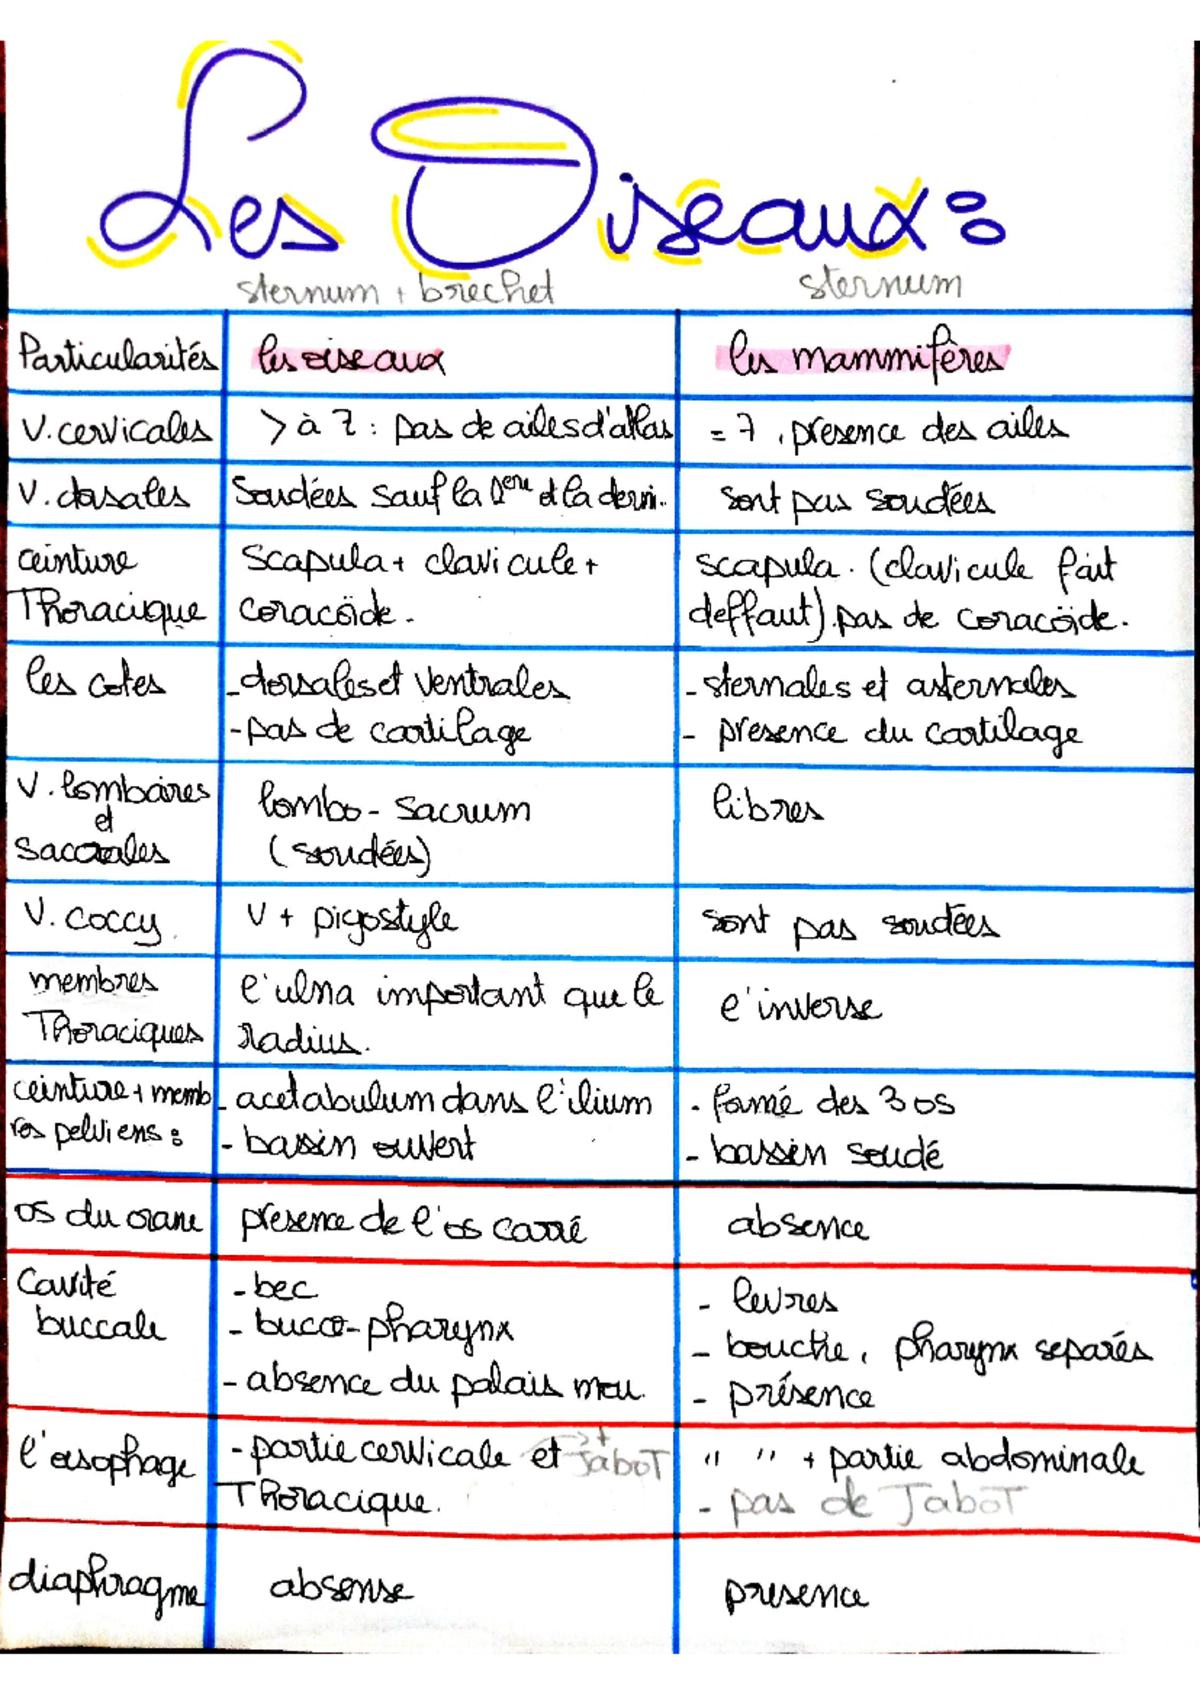 Les Oiseaux :
sternum + brechet
sternum
Particularités
les oiseaux
les mammifères
V. cervicales
> à 7 : pas de ailes d'atlas
= 7 , presence des ailes
V. dorsales
Soudées sauf la 1ere et la derni..
sont pas soudées
ceinture
Thoracique
Scapula + clavicule +
coracoïde.
scapula. (clavicule fait
deffaut). pas de coracoïde.
les cotes
- dorsales et ventrales
- pas de cartilage
- sternales et asternales
- presence du cartilage
V. lombaires
et
sacrales
lombo-sacrum
(soudées)
libres
V. coccy.
V + pigostyle
sont pas soudées
membres
Thoraciques
l'ulna important que le
radius.
l'inverse
ceinture + memb
res pelviens :
- acetabulum dans l'ilium
- bassin ouvert
- formé des 3 os
- bassin soudé
os du crane
presence de l'os carré
absence
Cavité
buccale
- bec
- bucco-pharynx
- absence du palais mou.
- levres
- bouche, pharynx separés
- présence
l'oesophage
- partie cervicale et + JaboT
Thoracique.
" " + partie abdominale
- pas de JaboT
diaphragme
absense
presence